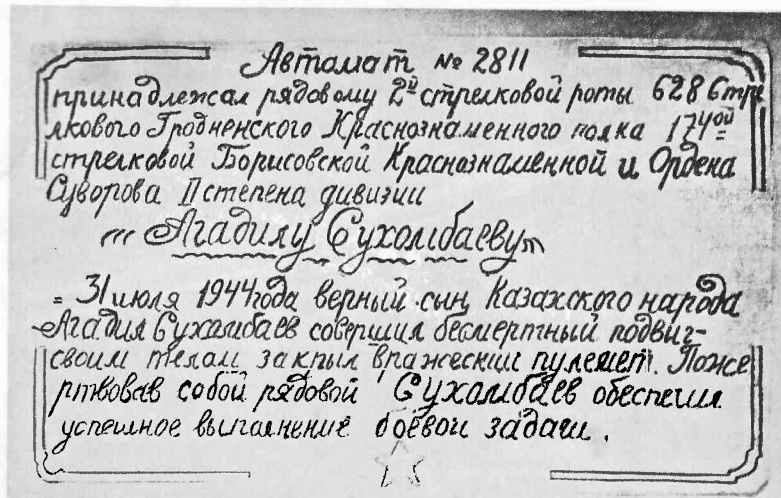 Автомат № 2811
принадлежал рядовому 2й стрелковой роты 628 Стре
лкового Гродненского Краснознаменного полка 174ой
стрелковой Борисовской Краснознаменной и Ордена
Суворова II степена дивизии
"" Агадилу Сухомбаеву "
= 31 июля 1944 года верный сын Казахского народа
Агадил Сухамбаев совершил бесмертный подвиг-
своим телом закрыл вражеский пулемет. Поже
ртвовав собой рядовой Сухомбаев обеспечил
успешное выполнение боевой задачи.